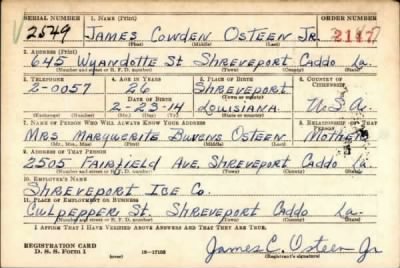 SERIAL NUMBER 1. NAME (Print) ORDER NUMBER
2549 JAMES COWDEN OSTEEN JR. 2117
(First) (Middle) (Last)
2. ADDRESS (Print)
645 WYANDOTTE ST SHREVEPORT CADDO LA.
(Number and street or R. F. D. number) (Town) (County) (State)
3. TELEPHONE 4. AGE IN YEARS 5. PLACE OF BIRTH 6. COUNTRY OF CITIZENSHIP
2-0057 26 SHREVEPORT
DATE OF BIRTH
2-23-14 LOUISIANA U.S.A.
(Exchange) (Number) (Mo.) (Day) (Yr.) (State or country)
7. NAME OF PERSON WHO WILL ALWAYS KNOW YOUR ADDRESS 8. RELATIONSHIP OF THAT PERSON
MRS MARGUERITE OSTEEN MOTHER
(Mr., Mrs., Miss) (First) (Middle) (Last)
9. ADDRESS OF THAT PERSON
2505 FAIRFIELD AVE SHREVEPORT CADDO LA.
(Number and street or R. F. D. number) (Town) (County) (State)
10. EMPLOYER'S NAME
SHREVEPORT ICE CO.
11. PLACE OF EMPLOYMENT OR BUSINESS
CULPEPPER ST. SHREVEPORT CADDO LA.
(Number and street or R. F. D. number) (Town) (County) (State)
I AFFIRM THAT I HAVE VERIFIED ABOVE ANSWERS AND THAT THEY ARE TRUE.
REGISTRATION CARD
D. S. S. Form 1 (over) 16-17105
James C. Osteen Jr
(Registrant's signature)